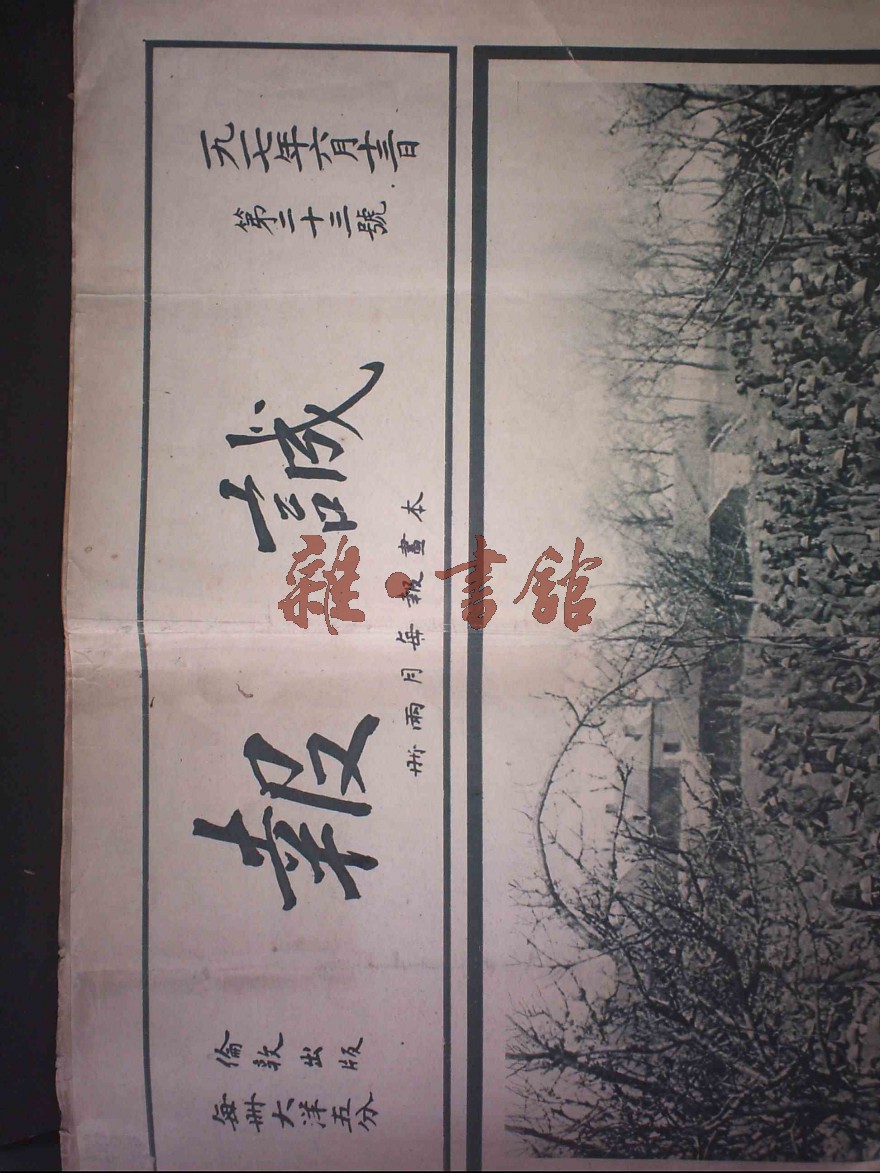 一九一七年六月十三日
第二十三號
誠報
本畫報每月兩册
倫敦出版
每册大洋五分
雜·書館